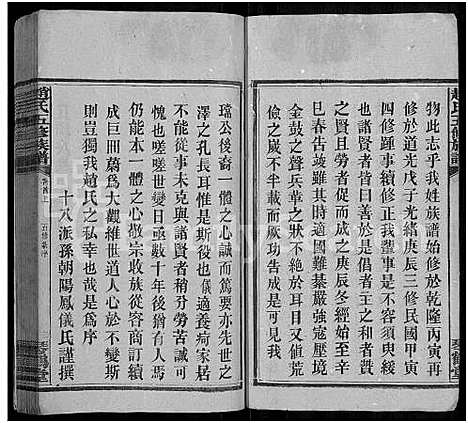 趙氏五修族譜
物此志乎我姓族譜始修於乾隆丙寅再
修於道光戊子光緒庚辰三修民國甲寅
四修踵事續修正我輩事是不容緩須與綬
之者皆曰善於是共倡者主之和者與
之賢者勞而成之庚辰冬經始至辛
巳春告竣其時適國難綦嚴強寇壓境
金鼓之聲兵革之狀不絕於耳目又值
儉之歲不半載而厥功告成是可見我
璫公後裔一體之心誠而篤要亦先世之
澤之孔長耳惟是斯役也儀適養疴家居
從事未克與諸賢者稍分勞苦誠可
愧也嗟嗟世變日亟數十年後猶有人焉
仍能本一體之心敬宗收族從容商訂續
成巨冊蔚為大觀維世道人心於不變斯
則豈獨我趙氏之私幸也哉是為序
十八派孫朝陽鳳儀氏謹撰
趙氏五修族譜
琴鶴堂
琴鶴堂